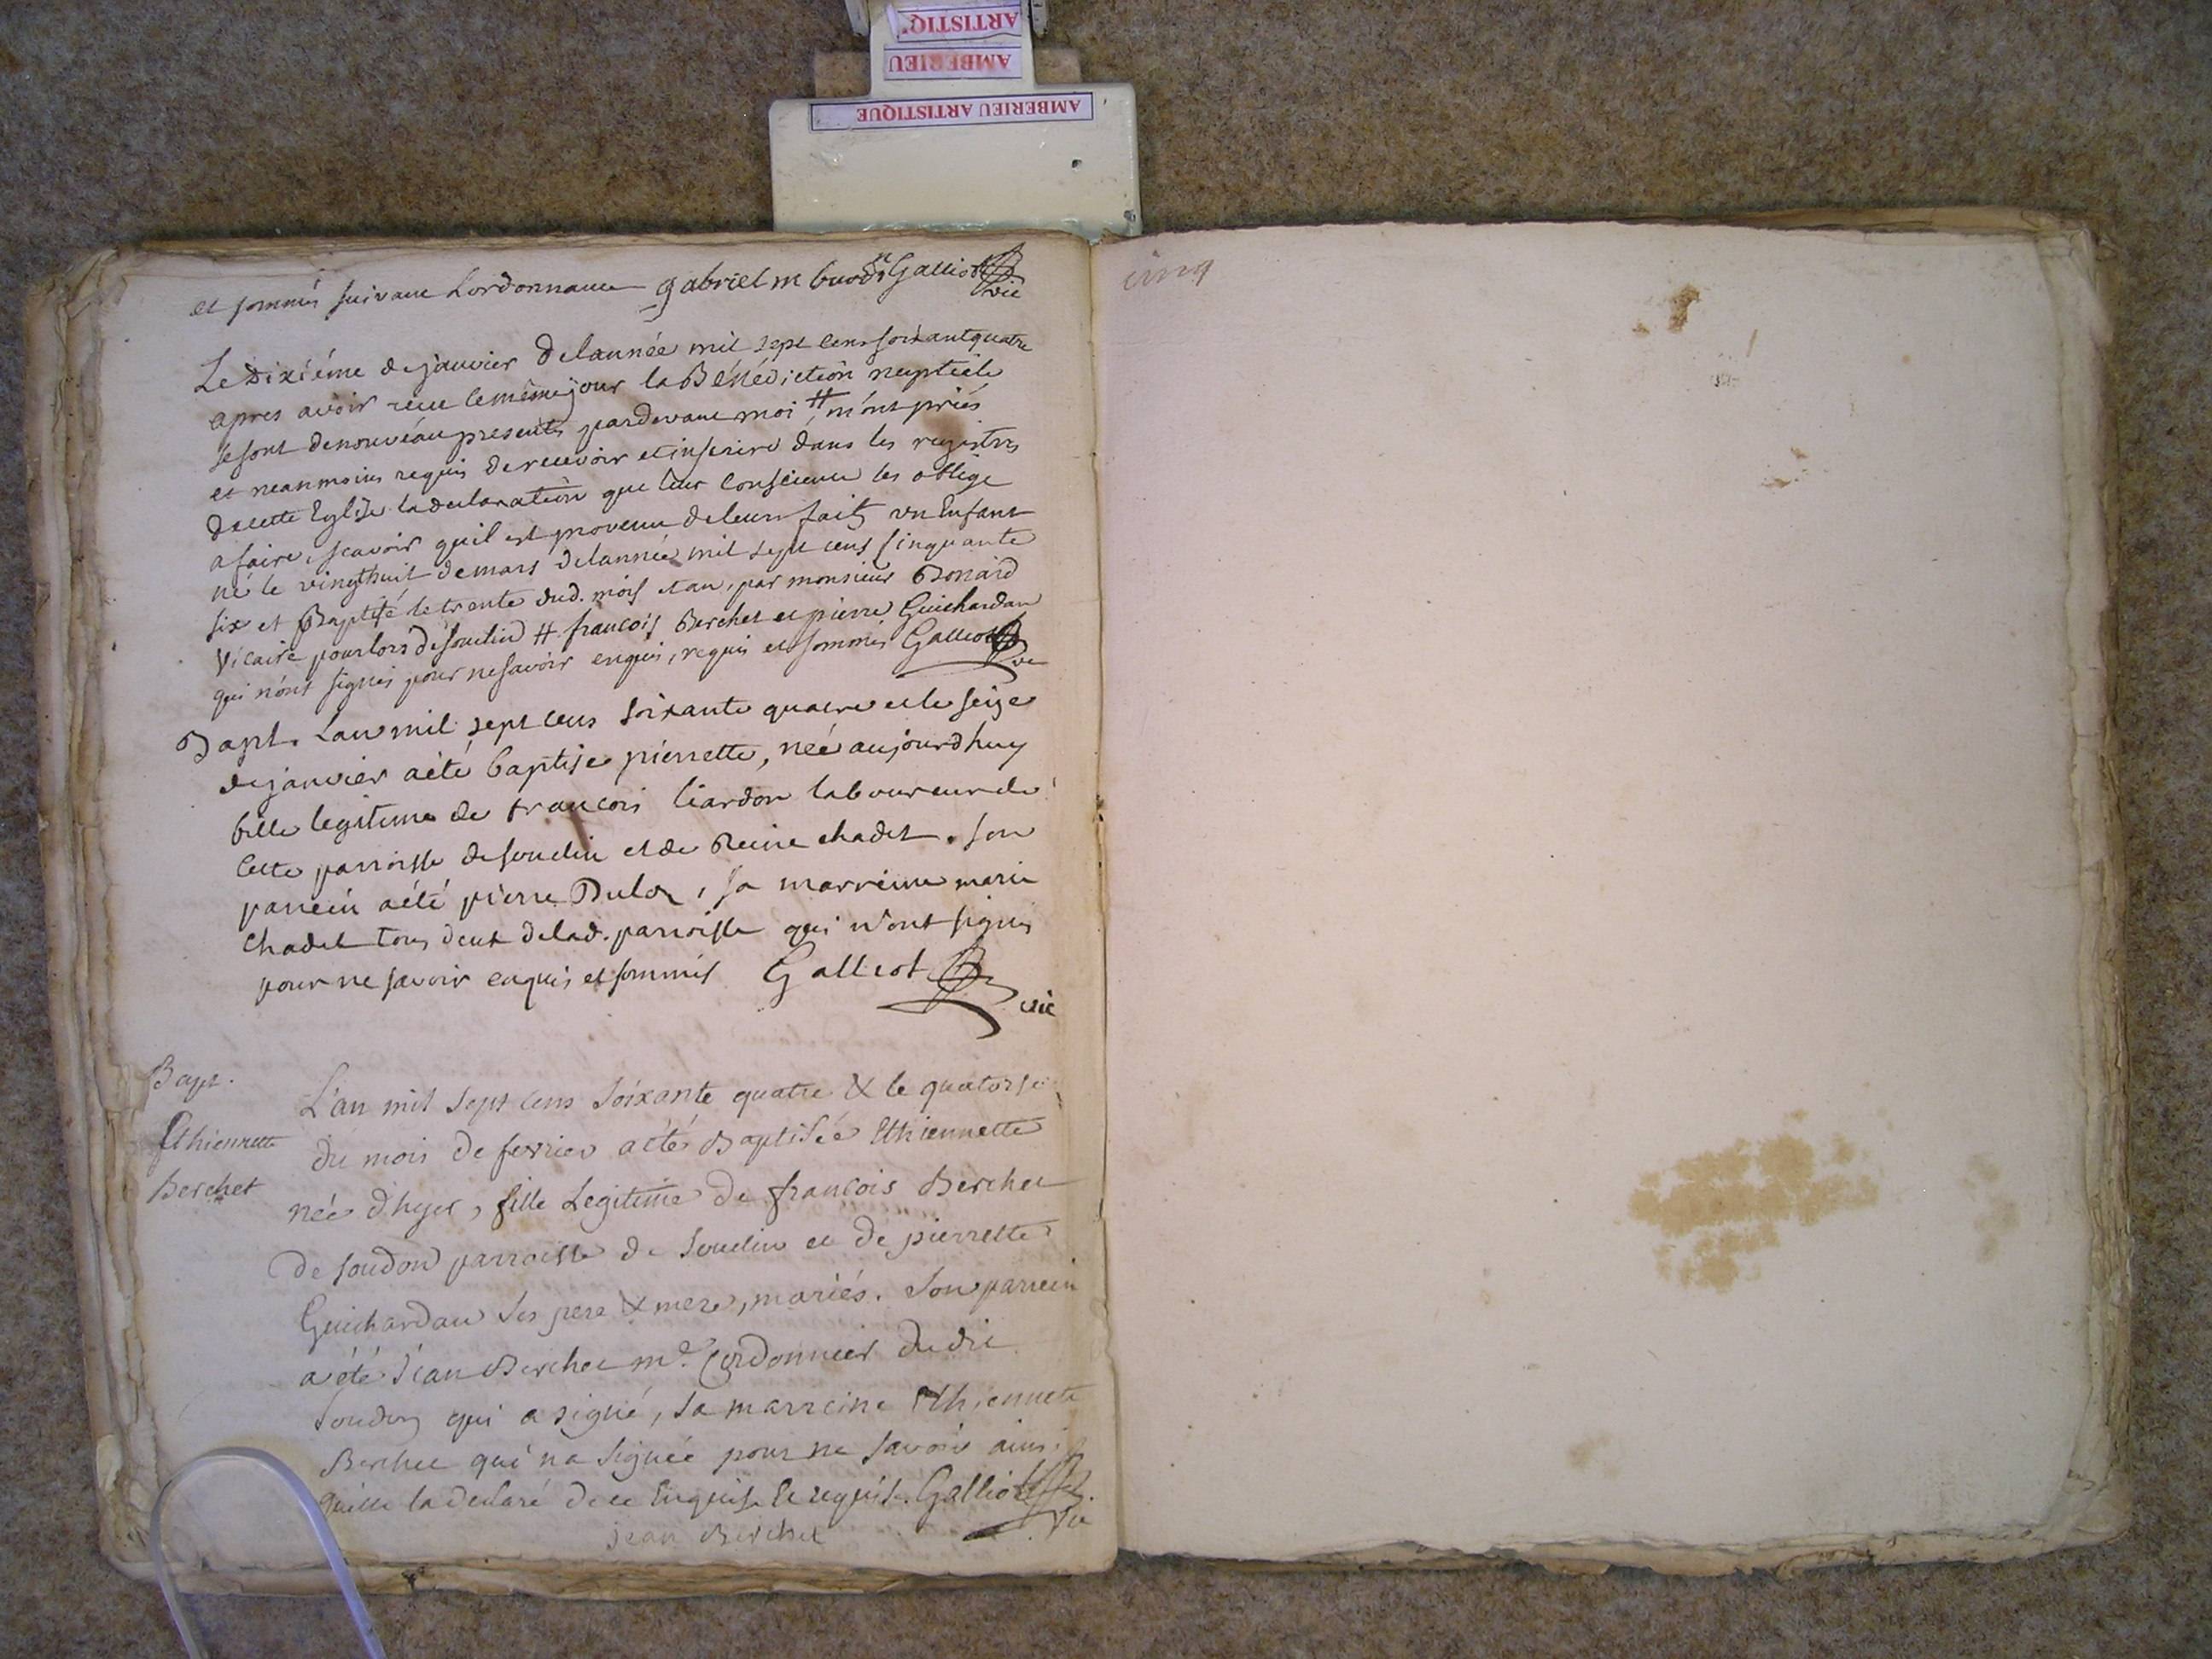 ARTISTIQ'
AMBERIEU
AMBERIEU ARTISTIQUE
et sommés suivant Lordonnance gabriel m Galliot vic
cinq
Le Dixiéme de janvier delannée mil sept cens soixant quatre
apres avoir recu le même jour la Bénédiction nuptiale
se sont denouveau presentés pardevant moi # m'ont priés
et neanmoins requis de recevoir et inserire dans les registres
de cette Eglise la declaration que leur Conscience les oblige
a faire, scavoir quil est provenu de leurs faits un Enfant
né le vingthuit de mars delannée mil sept cens cinquante
six et Baptisé le trente dud. mois et an, par monsieur Bonard
Vicaire pourlors de souclin # francois Berchet et pierre Guichardan
qui n'ont signés pour ne savoir enquis, requis et sommés Galliot vic
Bapt. Lan mil sept cens soixante quatre et le seize
de janvier aété baptise pierrette, née aujourdhuy
fille legitime de francois liardon laboureur de
Cette parroisse de souclin et de Reine chadet. son
parrein aété pierre Dulor, sa marreine marie
Chadel tous deux delad. parroisse qui n'ont signés
pour ne savoir enquis et sommés Galliot
vic
Bapt.
Ethiennette
Berchet
L'an mil sept cens soixante quatre & le quatorse
du mois de fevrier aété Baptisée Ethiennette
née d'hyer, fille Legitime de francois Berchet
de soudon parroisse de souclin et de pierrette
Guichardan ses pere & mere, mariés. Son parrein
a été Jean Berchet md. Cordonnier dudit
soudon qui a signé, sa marreine Ethiennete
Berchet qui na signée pour ne savoir ainsi
quelle la declaré de ce Enquise et requise. Galliot
vic
jean Berchet